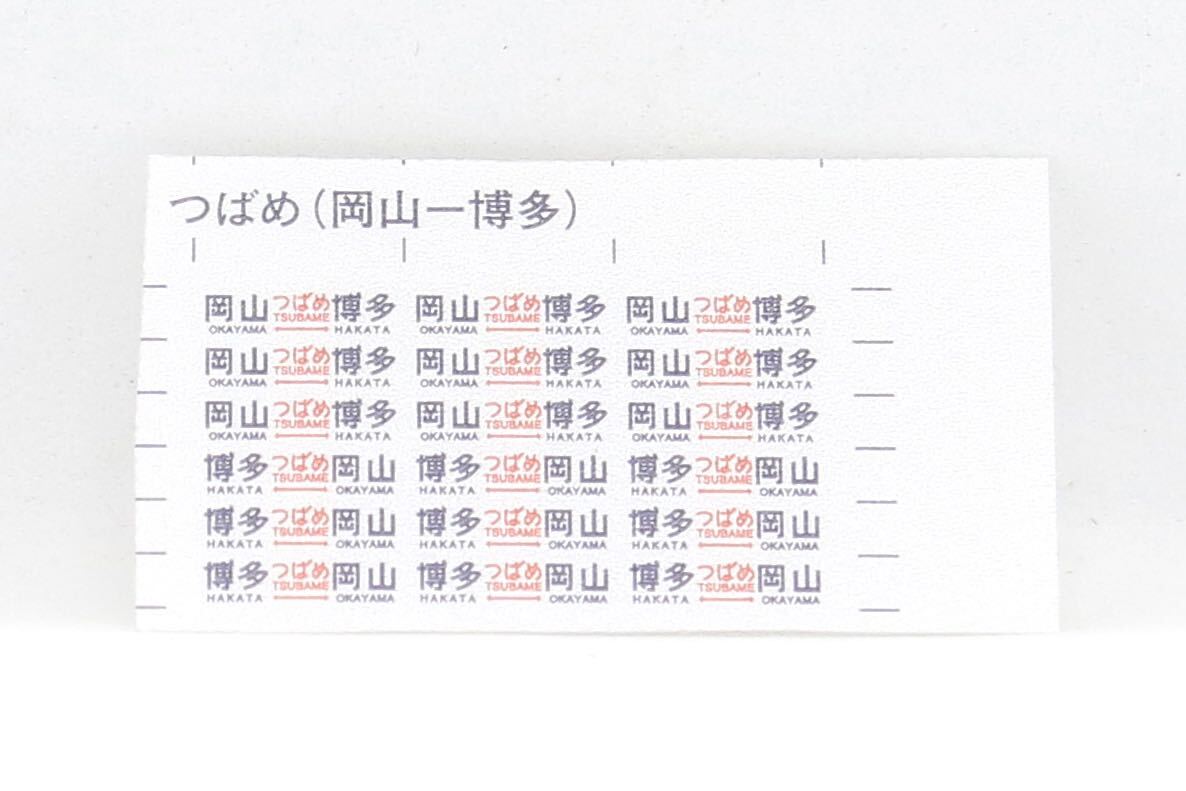 つばめ(岡山ー博多)
岡山 つばめ 博多 岡山 つばめ 博多 岡山 つばめ 博多
OKAYAMA TSUBAME HAKATA OKAYAMA TSUBAME HAKATA OKAYAMA TSUBAME HAKATA
岡山 つばめ 博多 岡山 つばめ 博多 岡山 つばめ 博多
OKAYAMA TSUBAME HAKATA OKAYAMA TSUBAME HAKATA OKAYAMA TSUBAME HAKATA
岡山 つばめ 博多 岡山 つばめ 博多 岡山 つばめ 博多
OKAYAMA TSUBAME HAKATA OKAYAMA TSUBAME HAKATA OKAYAMA TSUBAME HAKATA
博多 つばめ 岡山 博多 つばめ 岡山 博多 つばめ 岡山
HAKATA TSUBAME OKAYAMA HAKATA TSUBAME OKAYAMA HAKATA TSUBAME OKAYAMA
博多 つばめ 岡山 博多 つばめ 岡山 博多 つばめ 岡山
HAKATA TSUBAME OKAYAMA HAKATA TSUBAME OKAYAMA HAKATA TSUBAME OKAYAMA
博多 つばめ 岡山 博多 つばめ 岡山 博多 つばめ 岡山
HAKATA TSUBAME OKAYAMA HAKATA TSUBAME OKAYAMA HAKATA TSUBAME OKAYAMA